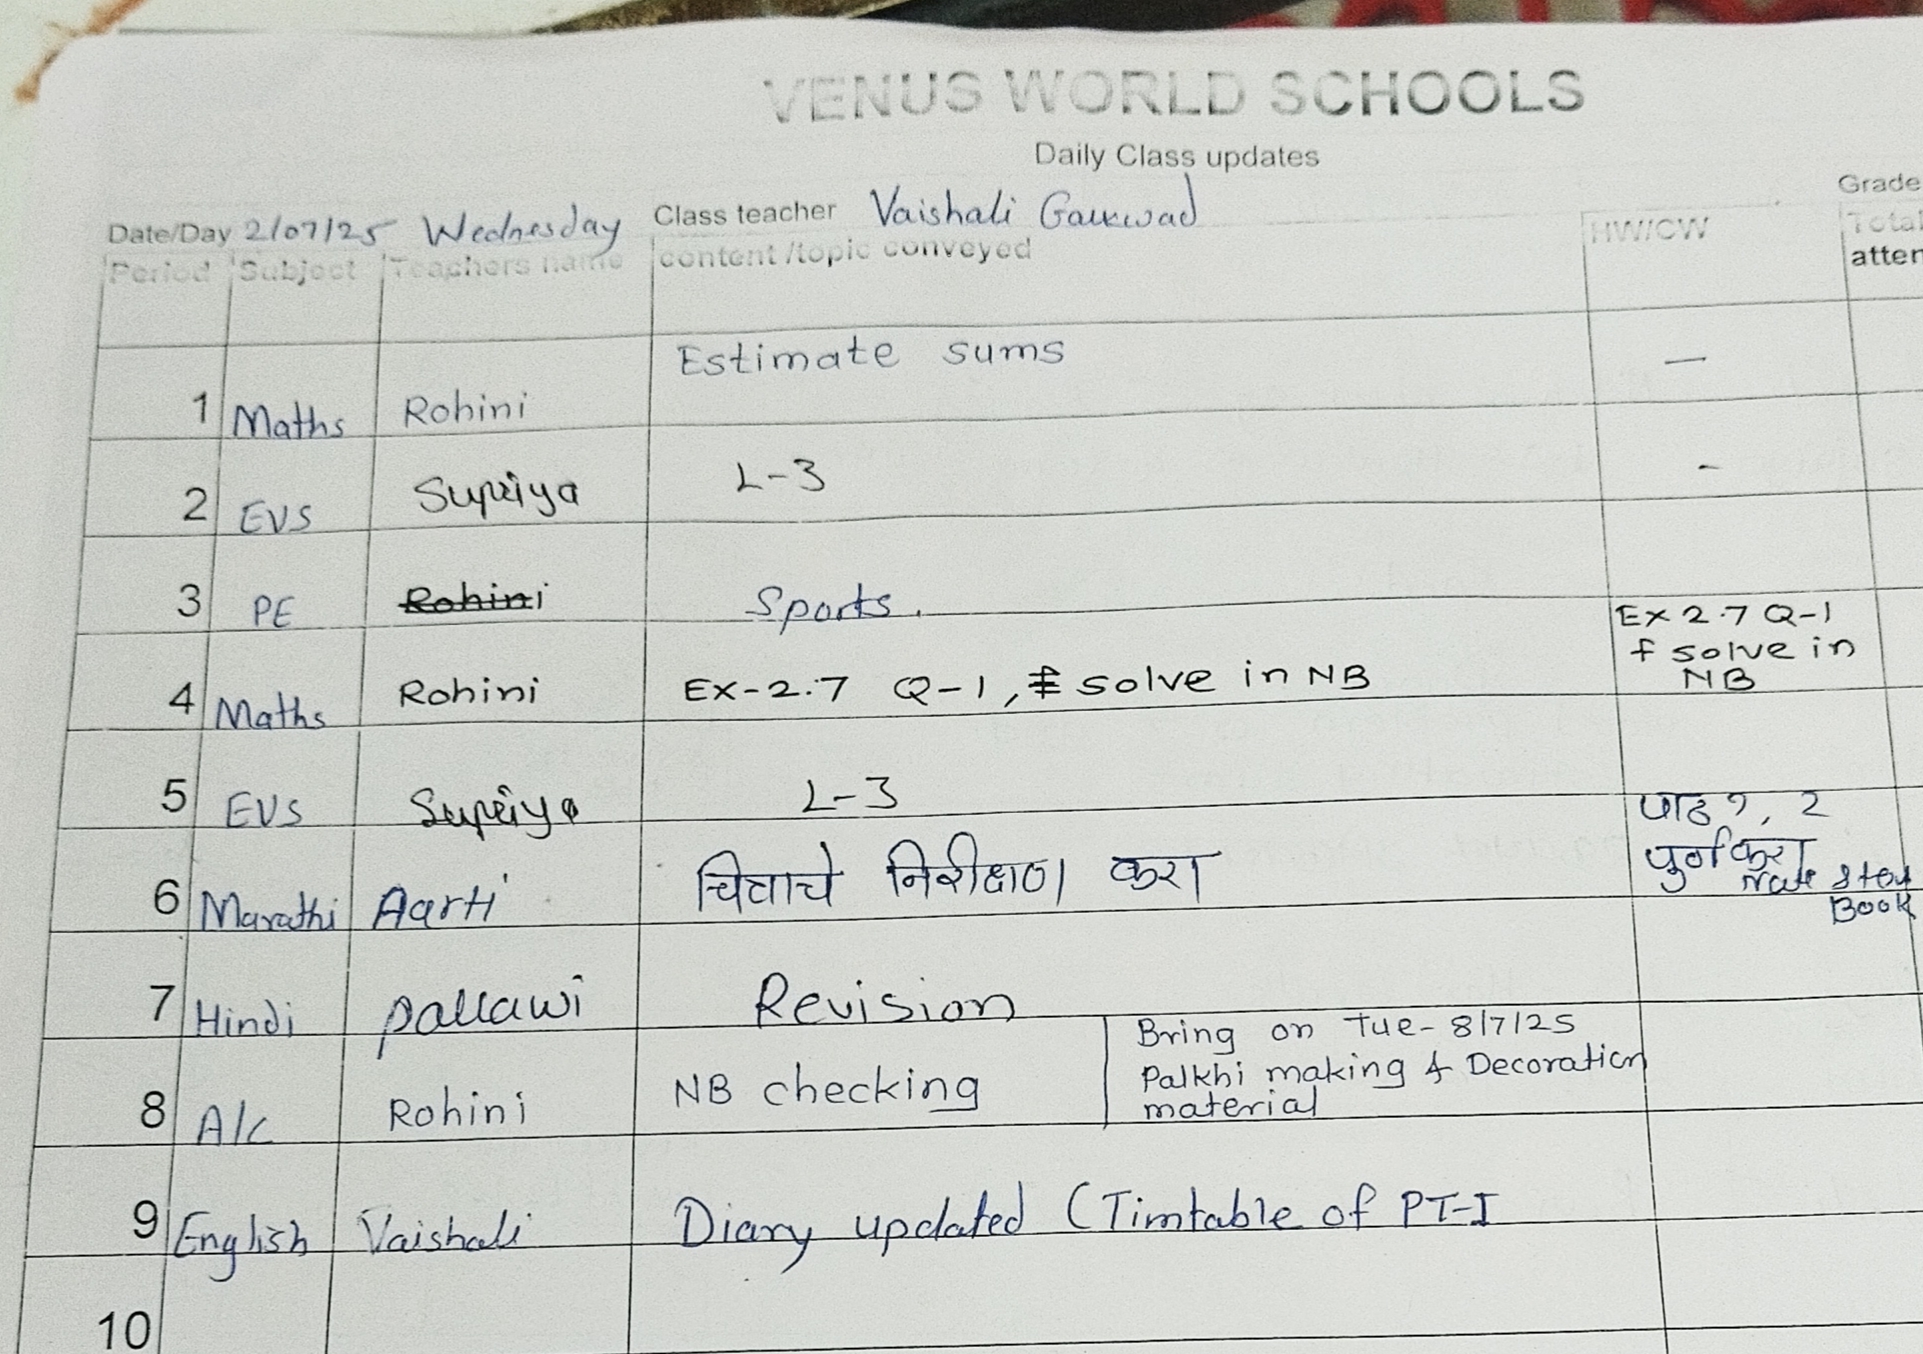 VENUS WORLD SCHOOLS
Daily Class updates
Grade
Date/Day 2/07/25 Wednesday Class teacher Vaishali Gaikwad
Period Subject Teachers name content /topic conveyed HW/CW Total
atten
1 Maths Rohini Estimate sums —
2 EVS Supriya L-3 -
3 PE Rohini Sports.
4 Maths Rohini Ex-2.7 Q-1, solve in NB
Ex 2.7 Q-1
f solve in
NB
5 EVS Supriya L-3
6 Marathi Aarti चित्राचे निरीक्षण करा
पाठ १, २
पुर्ण करा
Note
Book
7 Hindi pallawi Revision
8 A/C Rohini NB checking
Bring on Tue- 8/7/25
Palkhi making & Decoration
material
9 English Vaishali Diary updated (Timtable of PT-I
10